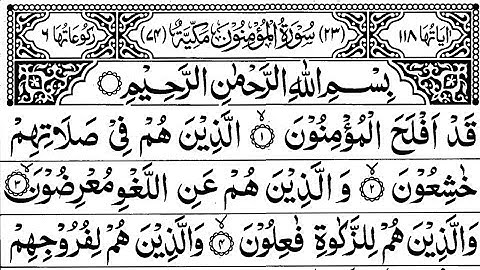 اٰیَاتُهَا ١١٨ (٢٣) سُوْرَةُ الْمُؤْمِنُوْنَ مَکِّیَّةٌ (٧٤) رُکُوْعَاتُهَا ٦
بِسْمِ اللّٰهِ الرَّحْمٰنِ الرَّحِیْمِ
قَدْ اَفْلَحَ الْمُؤْمِنُوْنَ ۙ﴿١﴾ الَّذِیْنَ هُمْ فِیْ صَلَاتِهِمْ
خٰشِعُوْنَ ۙ﴿٢﴾ وَالَّذِیْنَ هُمْ عَنِ اللَّغْوِ مُعْرِضُوْنَ ۙ﴿٣﴾
وَالَّذِیْنَ هُمْ لِلزَّکٰوةِ فٰعِلُوْنَ ۙ﴿٤﴾ وَالَّذِیْنَ هُمْ لِفُرُوْجِهِمْ